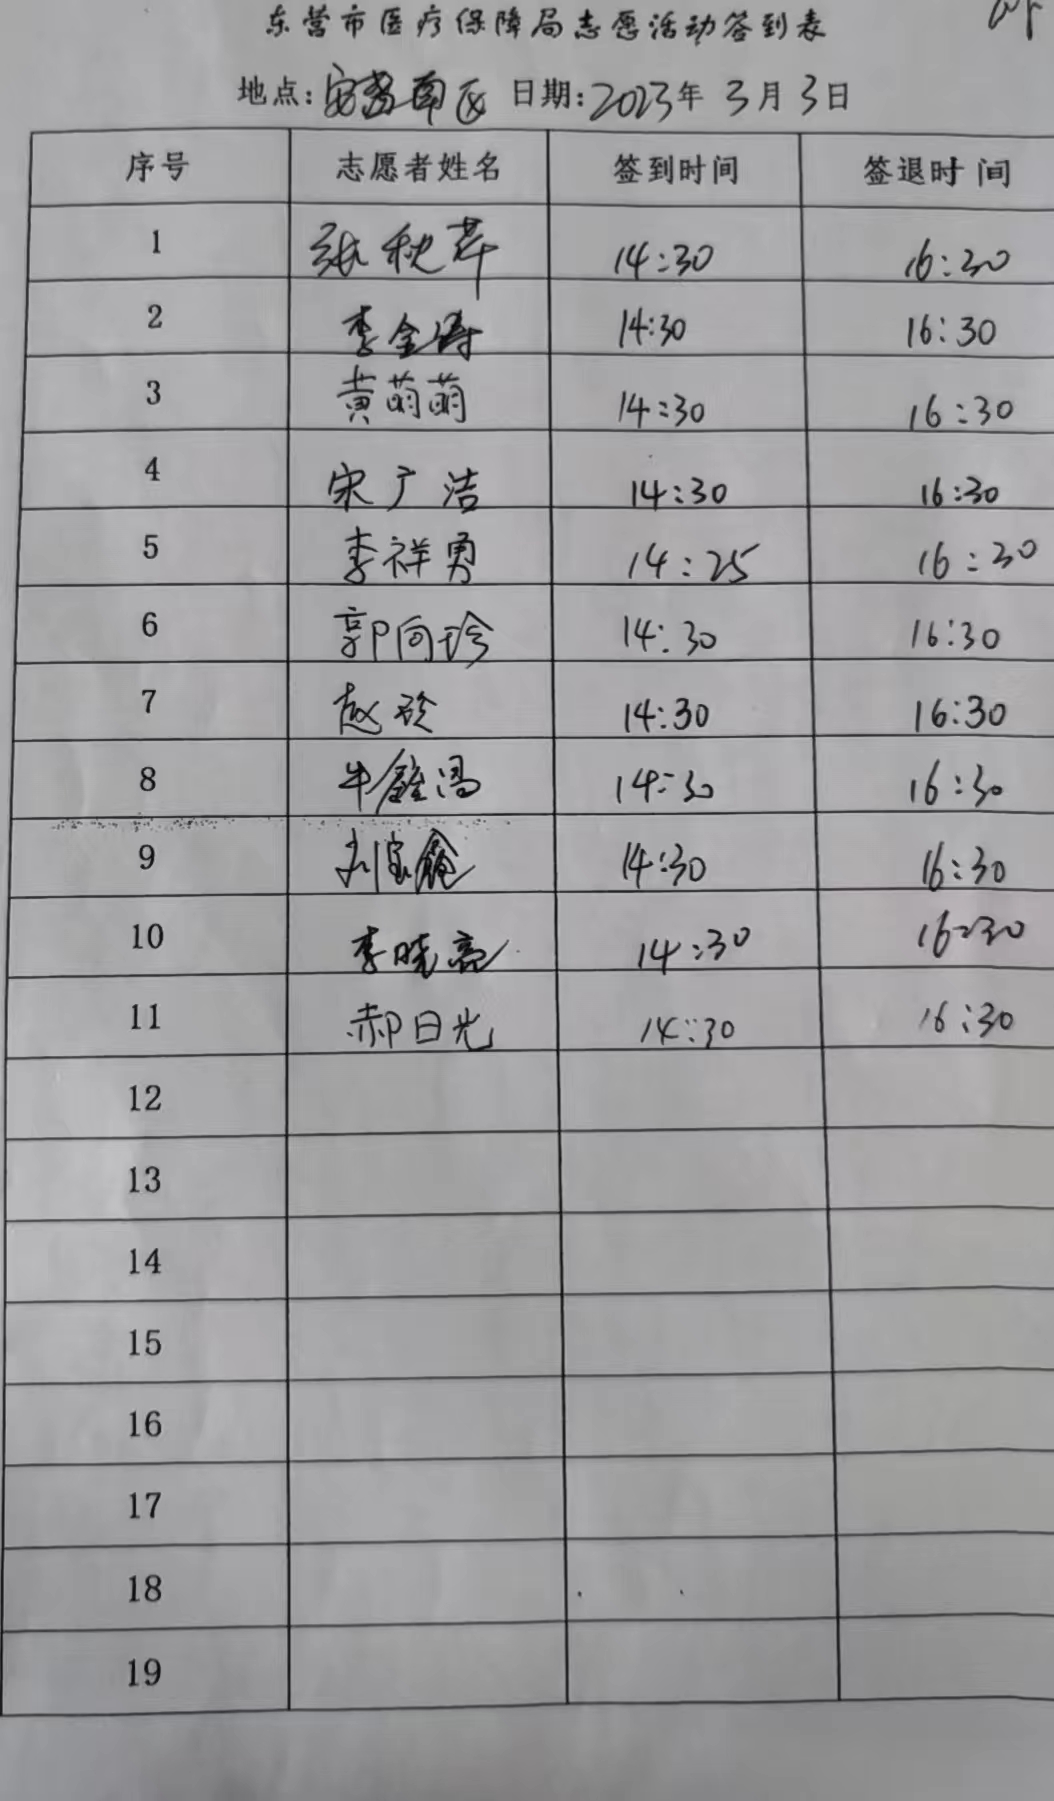 东营市医疗保障局志愿活动签到表
地点: 南区 日期: 2023年 3月 3日
序号 志愿者姓名 签到时间 签退时间
1 张秋萍 14:30 16:30
2 李金涛 14:30 16:30
3 黄萌萌 14:30 16:30
4 宋广洁 14:30 16:30
5 李祥勇 14:25 16:30
6 郭向珍 14:30 16:30
7 赵 14:30 16:30
8 牛 14:30 16:30
9 刘宝鑫 14:30 16:30
10 李晓亮 14:30 16:30
11 郝日光 14:30 16:30
12
13
14
15
16
17
18
19